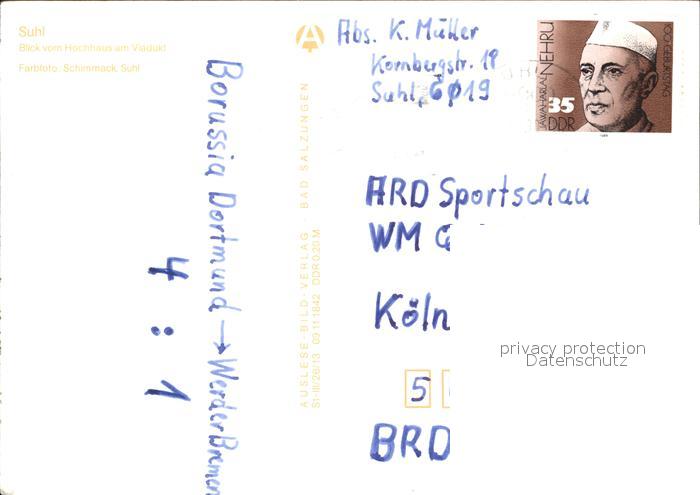 Suhl
Blick vom Hochhaus am Viadukt
Farbfoto: Schimmack, Suhl
Borussia Dortmund → Werder Bremen
4 : 1
AUSLESE-BILD-VERLAG - BAD SALZUNGEN
S1-III/26/13 09 11 1842 DDR 0,20 M
Abs. K. Müller
Kornbergstr. 19
Suhl, 6019
JAWAHARLAL NEHRU
100. GEBURTSTAG
35
DDR
1989
ARD Sportschau
WM
Köln
5
BRD
privacy protection
Datenschutz